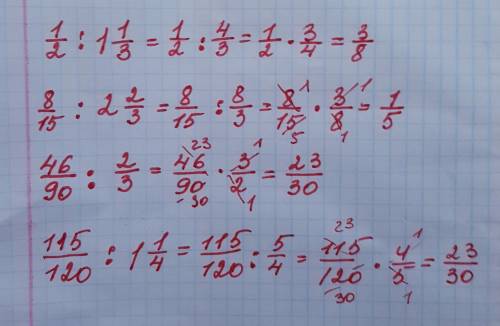 1/2 : 1 1/3 = 1/2 : 4/3 = 1/2 · 3/4 = 3/8
8/15 : 2 2/3 = 8/15 : 8/3 = 8/15 · 3/8 = 1/5
46/90 : 2/3 = 46/90 · 3/2 = 23/30
115/120 : 1 1/4 = 115/120 : 5/4 = 115/120 · 4/5 = 23/30